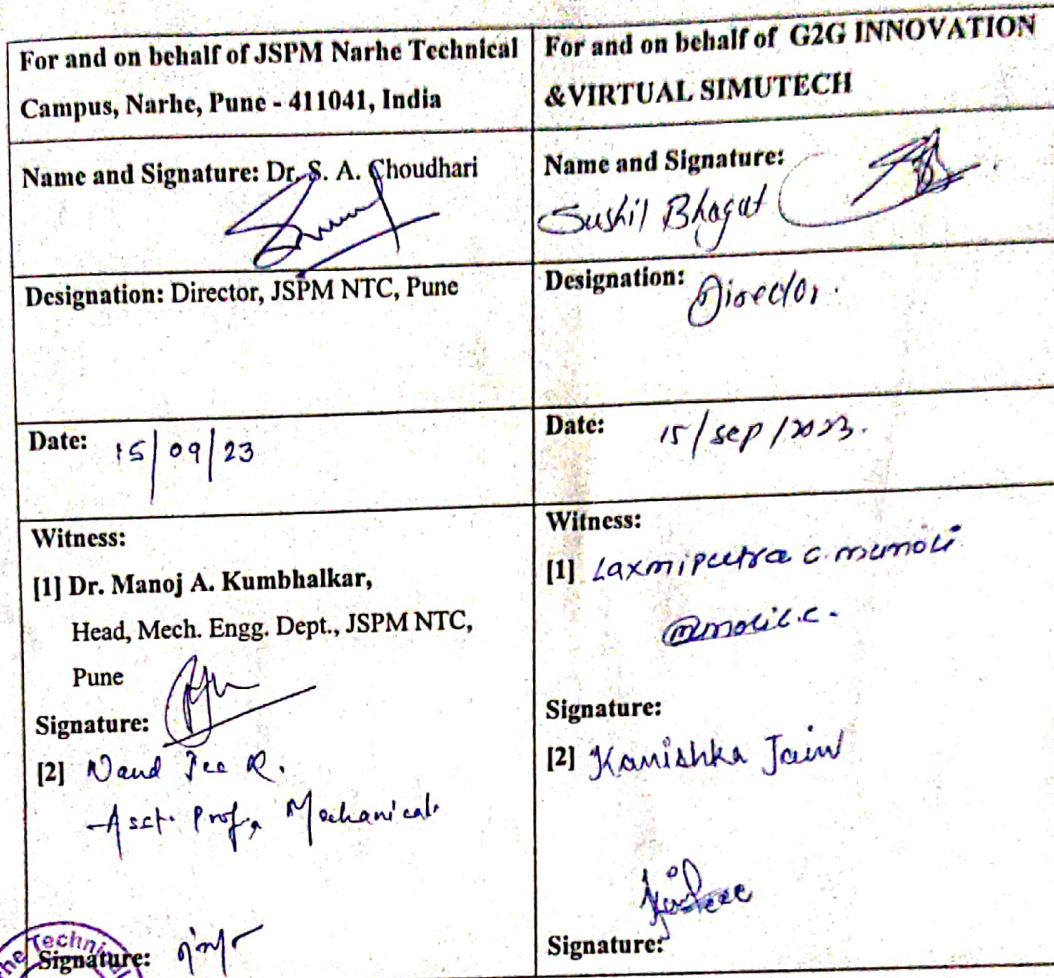 For and on behalf of JSPM Narhe Technical
Campus, Narhe, Pune - 411041, India
For and on behalf of G2G INNOVATION
&VIRTUAL SIMUTECH
Name and Signature: Dr. S. A. Choudhari
Name and Signature:
Sushil Bhagat
Designation: Director, JSPM NTC, Pune
Designation: Director.
Date: 15/09/23
Date: 15/sep/2023.
Witness:
[1] Dr. Manoj A. Kumbhalkar,
Head, Mech. Engg. Dept., JSPM NTC,
Pune
Signature:
[2] Nand Jee R.
Asst. Prof, Mechanical.
Signature:
Witness:
[1] Laxmiputra C.
Signature:
[2] Kanishka Jain
Signature: